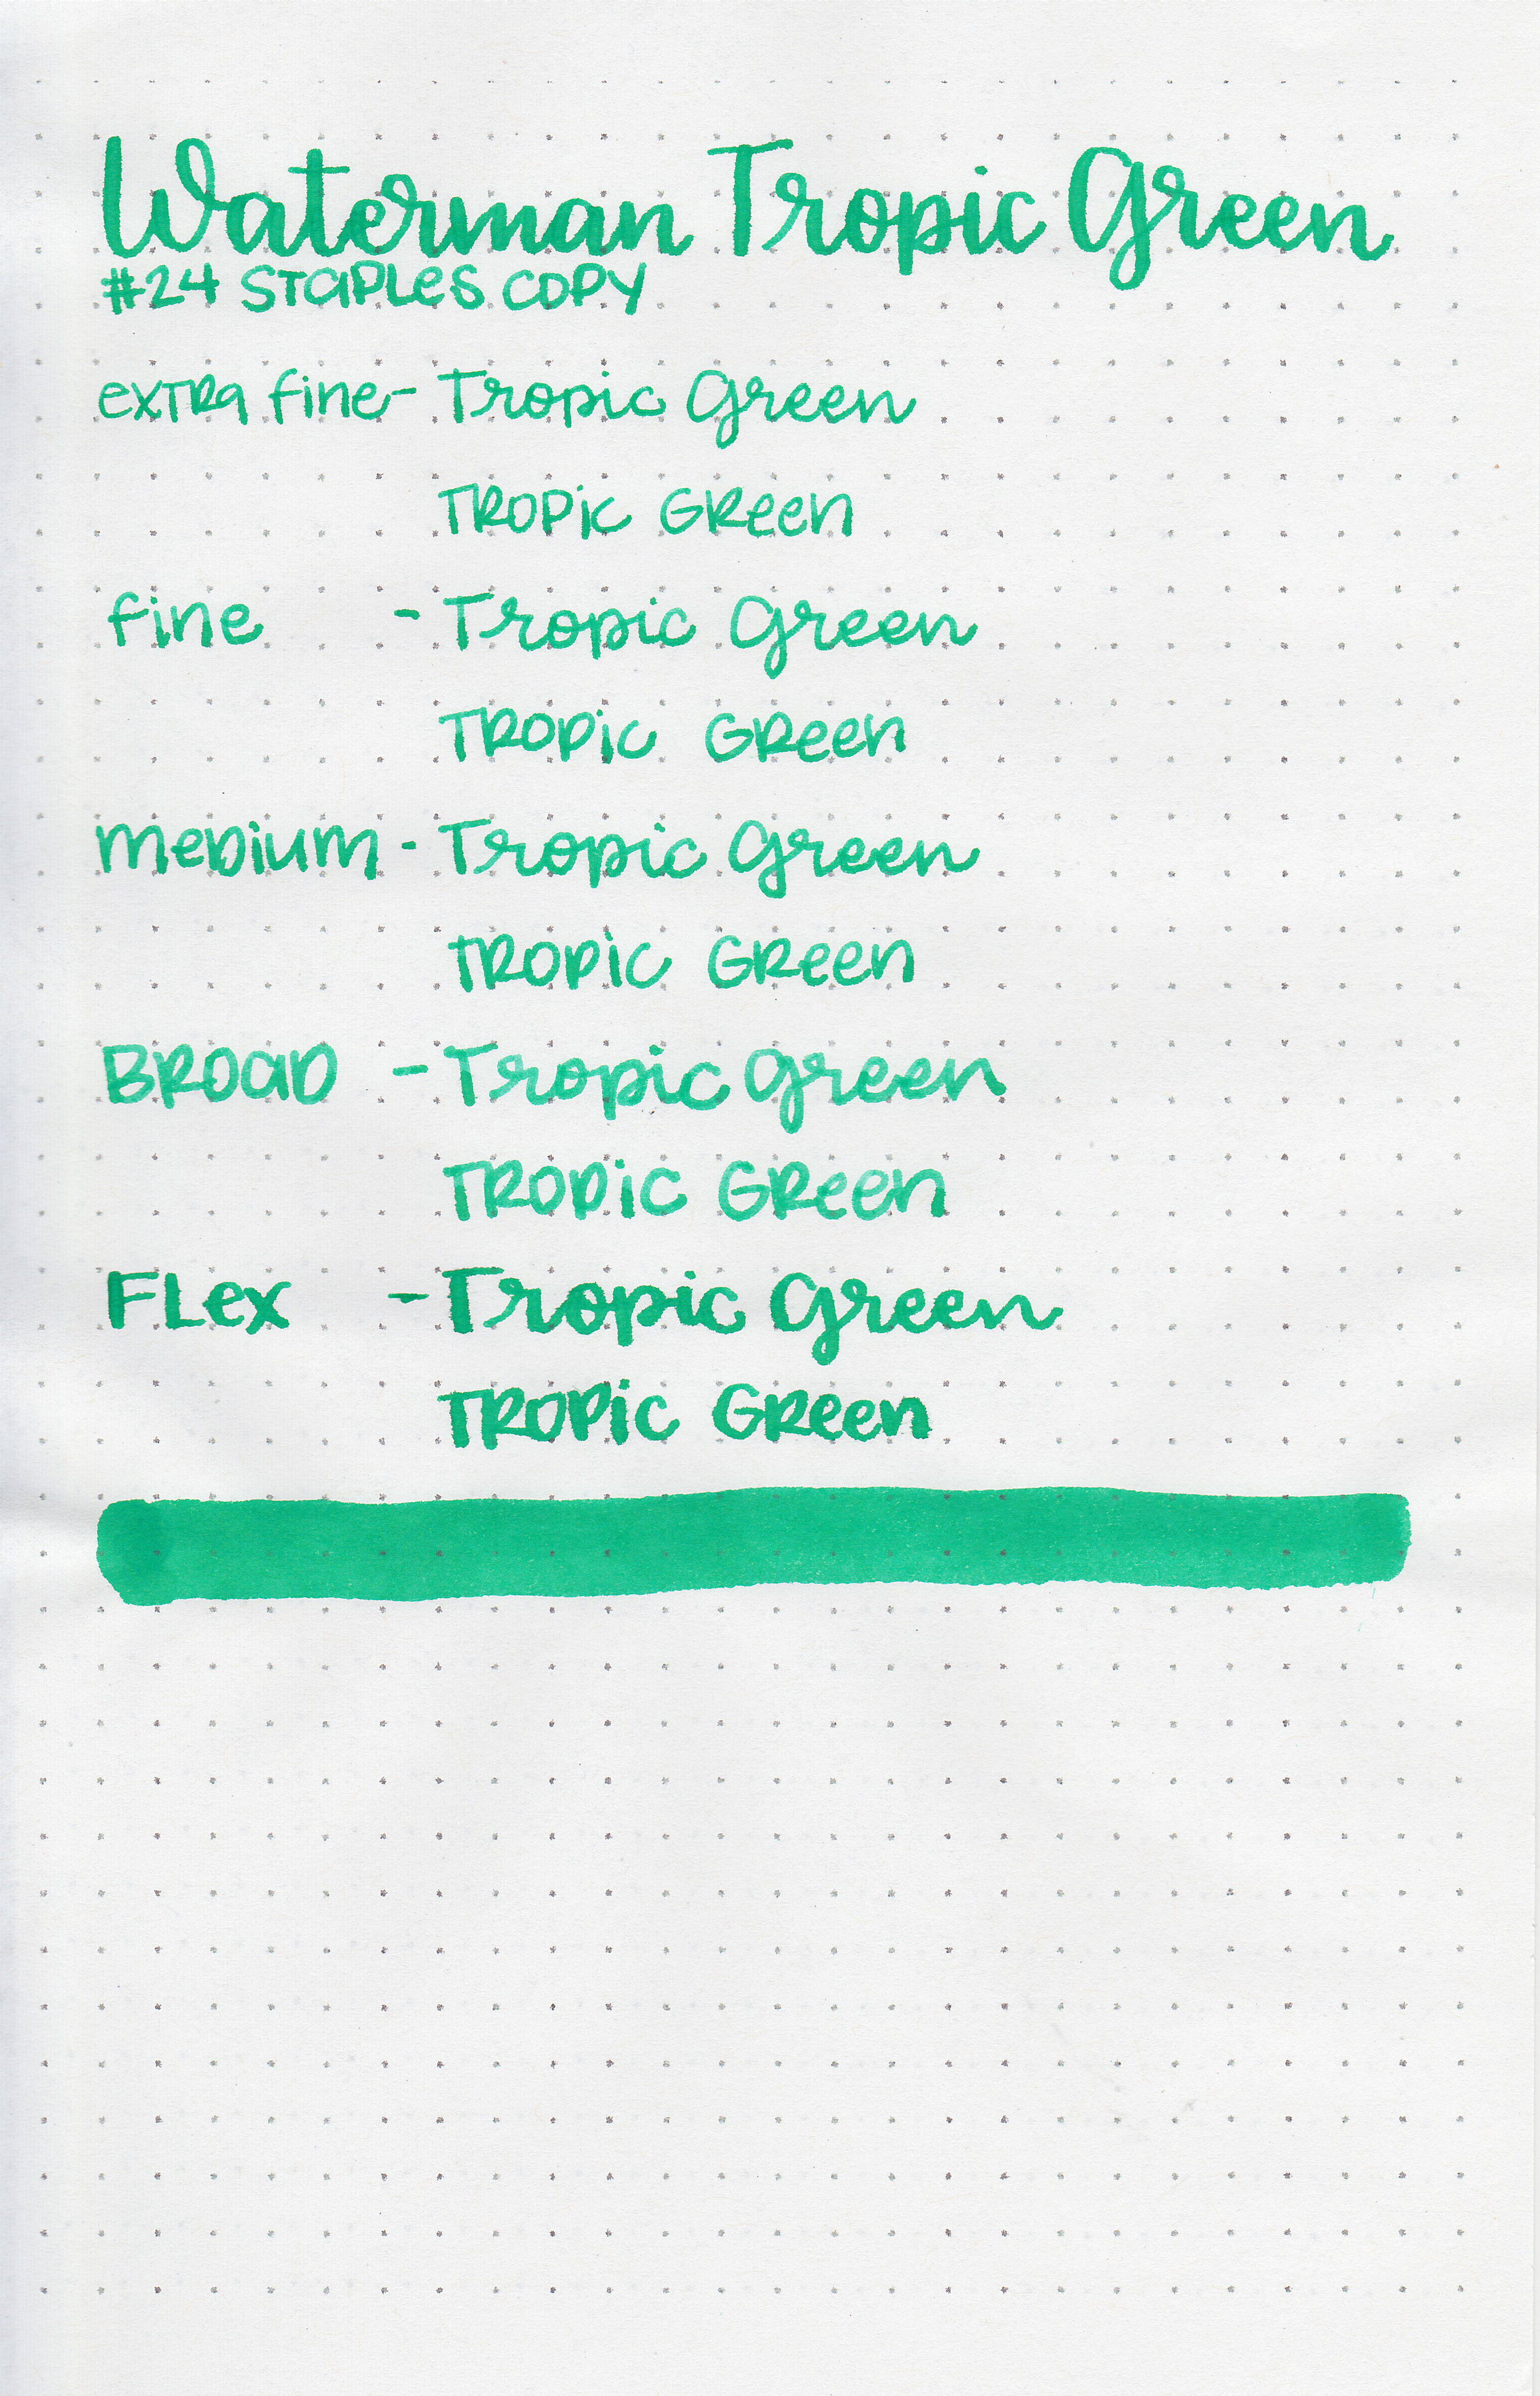 Waterman Tropic Green
#24 STaPLes COPY
exTRa fine - Tropic Green
TROPic GReen
fine - Tropic Green
TROPic GReen
meDium - Tropic Green
TROPic GReen
BROaD - Tropic Green
TROPic GReen
FLex - Tropic Green
TROPic GReen